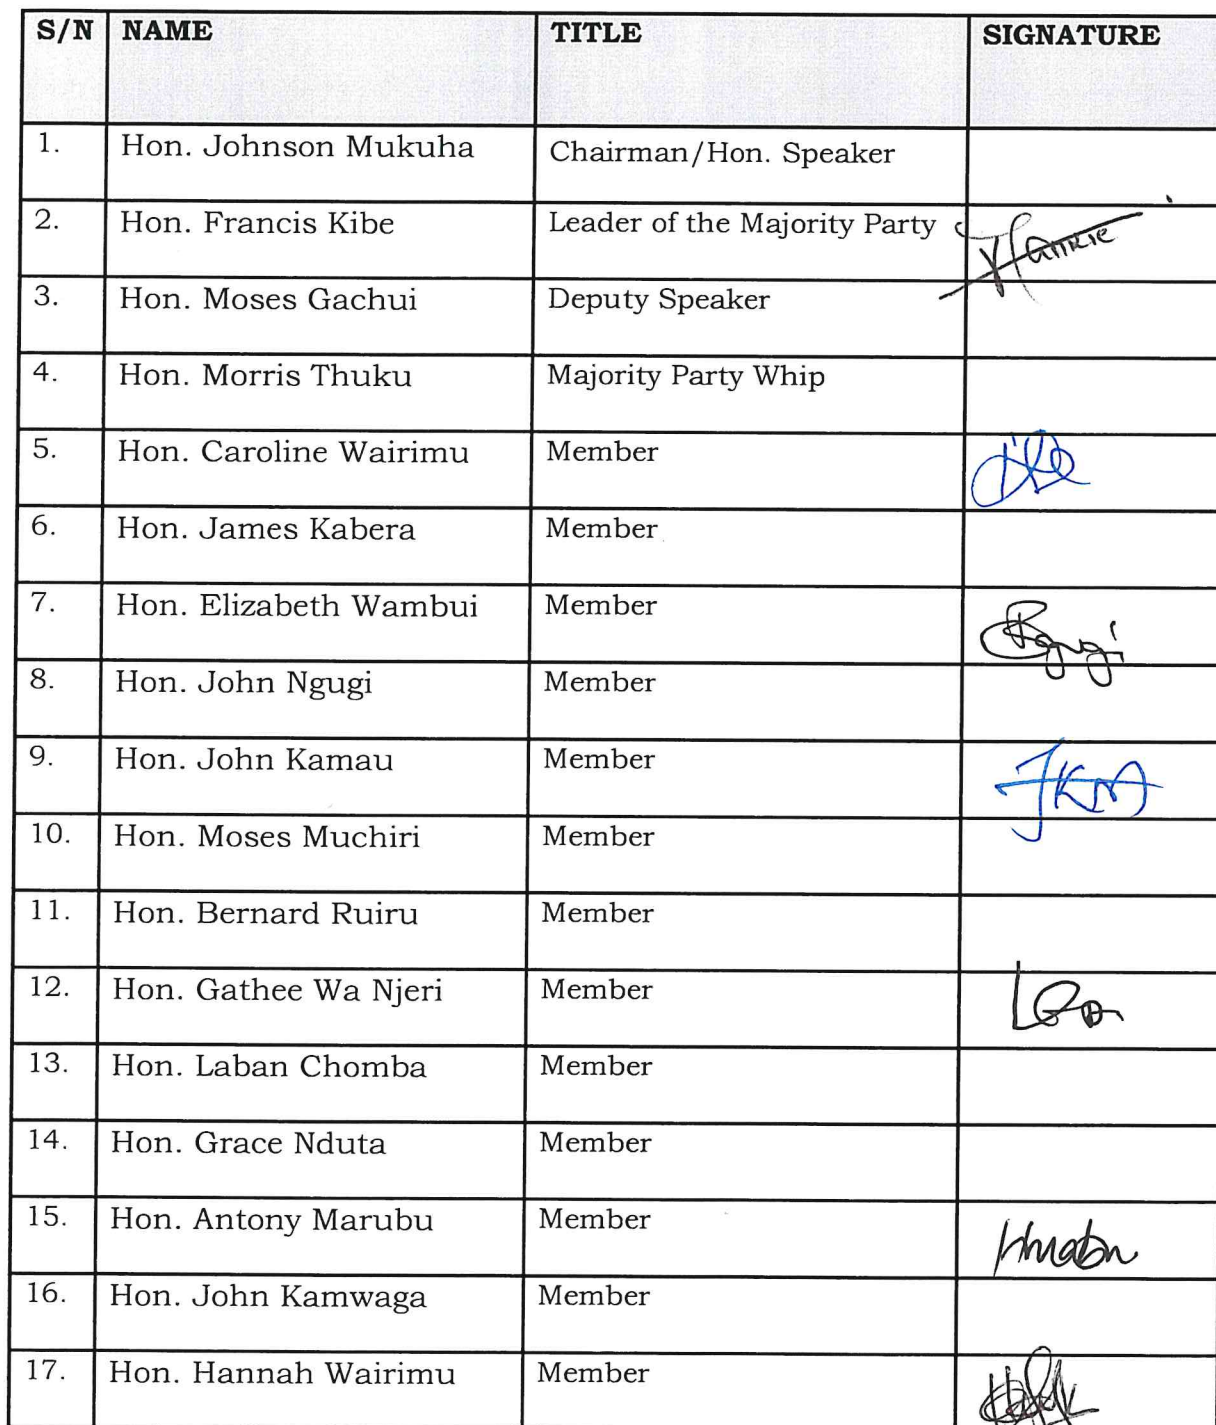 S/N NAME TITLE SIGNATURE
1. Hon. Johnson Mukuha Chairman/Hon. Speaker
2. Hon. Francis Kibe Leader of the Majority Party
3. Hon. Moses Gachui Deputy Speaker
4. Hon. Morris Thuku Majority Party Whip
5. Hon. Caroline Wairimu Member
6. Hon. James Kabera Member
7. Hon. Elizabeth Wambui Member
8. Hon. John Ngugi Member
9. Hon. John Kamau Member
10. Hon. Moses Muchiri Member
11. Hon. Bernard Ruiru Member
12. Hon. Gathee Wa Njeri Member
13. Hon. Laban Chomba Member
14. Hon. Grace Nduta Member
15. Hon. Antony Marubu Member
16. Hon. John Kamwaga Member
17. Hon. Hannah Wairimu Member